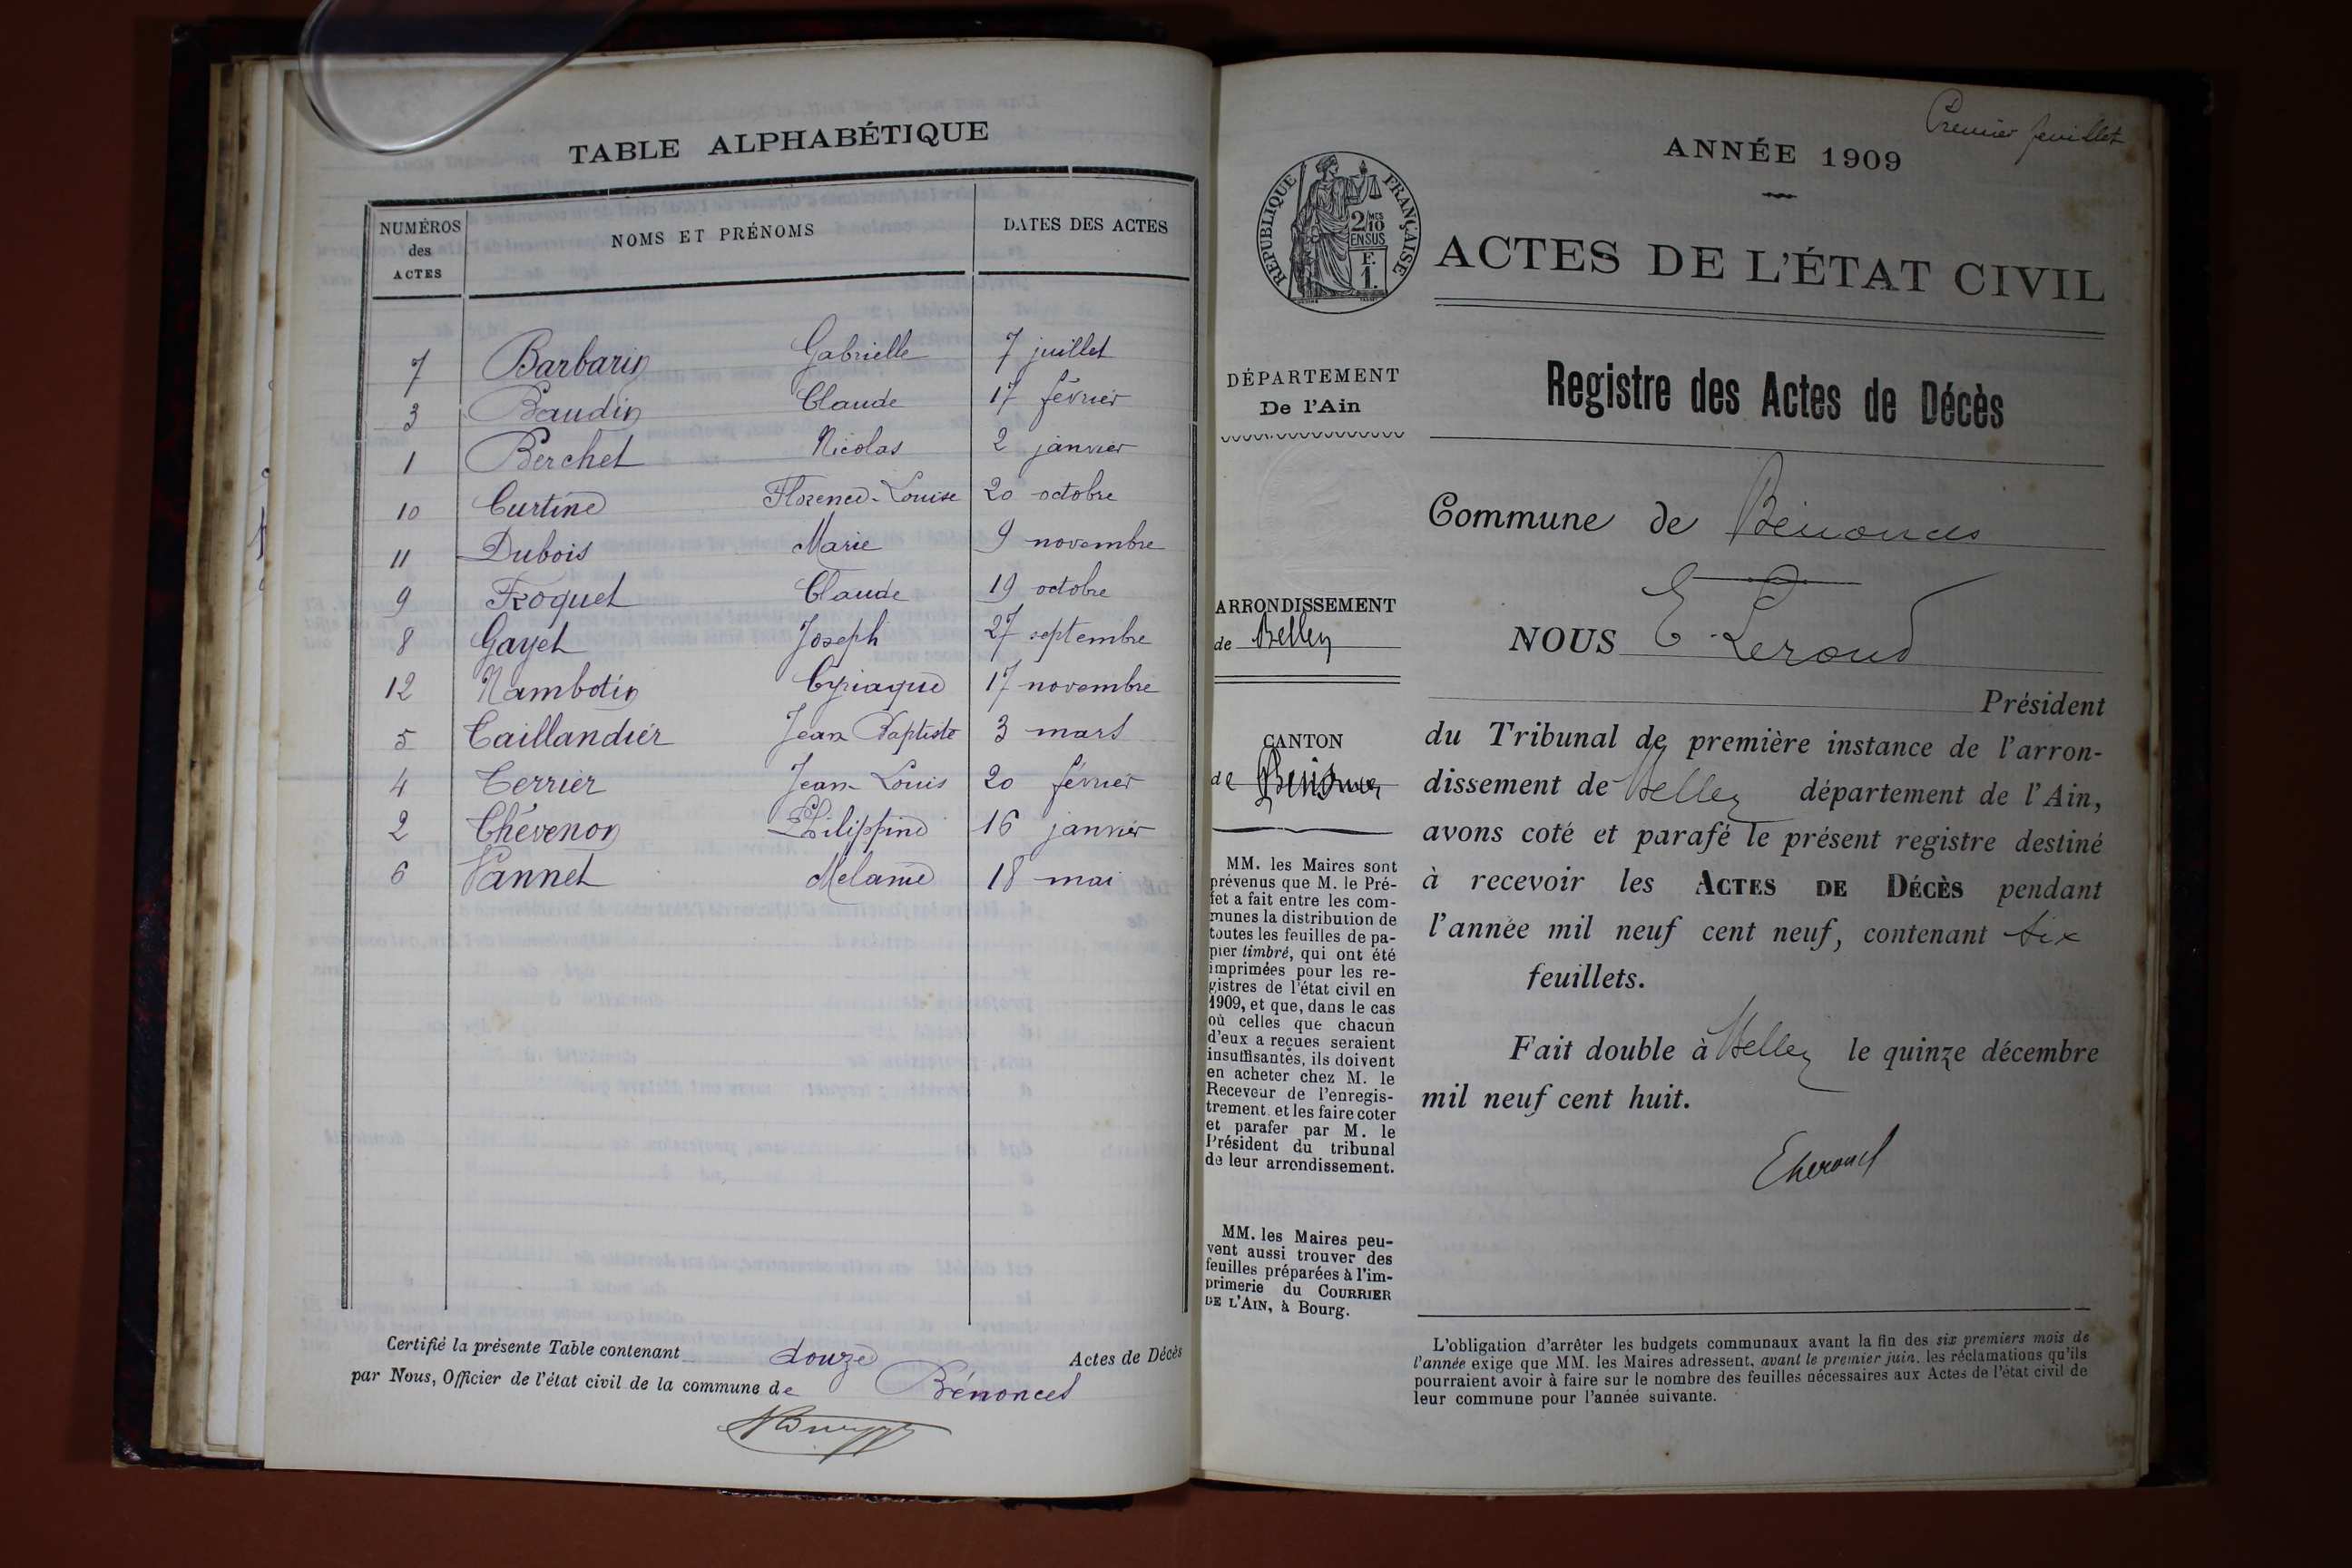 TABLE ALPHABÉTIQUE
NUMÉROS des ACTES NOMS ET PRÉNOMS DATES DES ACTES
7 Barbarin Gabrielle 7 juillet
3 Baudin Claude 17 février
1 Berchet Nicolas 2 janvier
10 Curtine Florence-Louise 20 octobre
11 Dubois Marie 9 novembre
9 Froquet Claude 19 octobre
8 Gayet Joseph 27 septembre
12 Nambotin Cyriaque 17 novembre
5 Taillandier Jean Baptiste 3 mars
4 Terrier Jean-Louis 20 février
2 Thévenon Philippine 16 janvier
6 Vannet Mélanie 18 mai
Certifié la présente Table contenant douze Actes de Décès
par Nous, Officier de l'état civil de la commune de Bénonces
Premier feuillet
ANNÉE 1909
RÉPUBLIQUE FRANÇAISE
2/10 MES
EN SUS
F.
1.
ACTES DE L'ÉTAT CIVIL
DÉPARTEMENT
De l'Ain
ARRONDISSEMENT
de Belley
CANTON
de
MM. les Maires sont
prévenus que M. le Pré-
fet a fait entre les com-
munes la distribution de
toutes les feuilles de pa-
pier timbré, qui ont été
imprimées pour les re-
gistres de l'état civil en
1909, et que, dans le cas
où celles que chacun
d'eux a reçues seraient
insuffisantes, ils doivent
en acheter chez M. le
Receveur de l'enregis-
trement et les faire coter
et parafer par M. le
Président du tribunal
de leur arrondissement.
MM. les Maires peu-
vent aussi trouver des
feuilles préparées à l'im-
primerie du COURRIER
DE L'AIN, à Bourg.
Registre des Actes de Décès
Commune de Bénonces
NOUS E. Peroud
Président
du Tribunal de première instance de l'arron-
dissement de Belley département de l'Ain,
avons coté et parafé le présent registre destiné
à recevoir les ACTES DE DÉCÈS pendant
l'année mil neuf cent neuf, contenant six
feuillets.
Fait double à Belley le quinze décembre
mil neuf cent huit.
L'obligation d'arrêter les budgets communaux avant la fin des six premiers mois de
l'année exige que MM. les Maires adressent, avant le premier juin, les réclamations qu'ils
pourraient avoir à faire sur le nombre des feuilles nécessaires aux Actes de l'état civil de
leur commune pour l'année suivante.